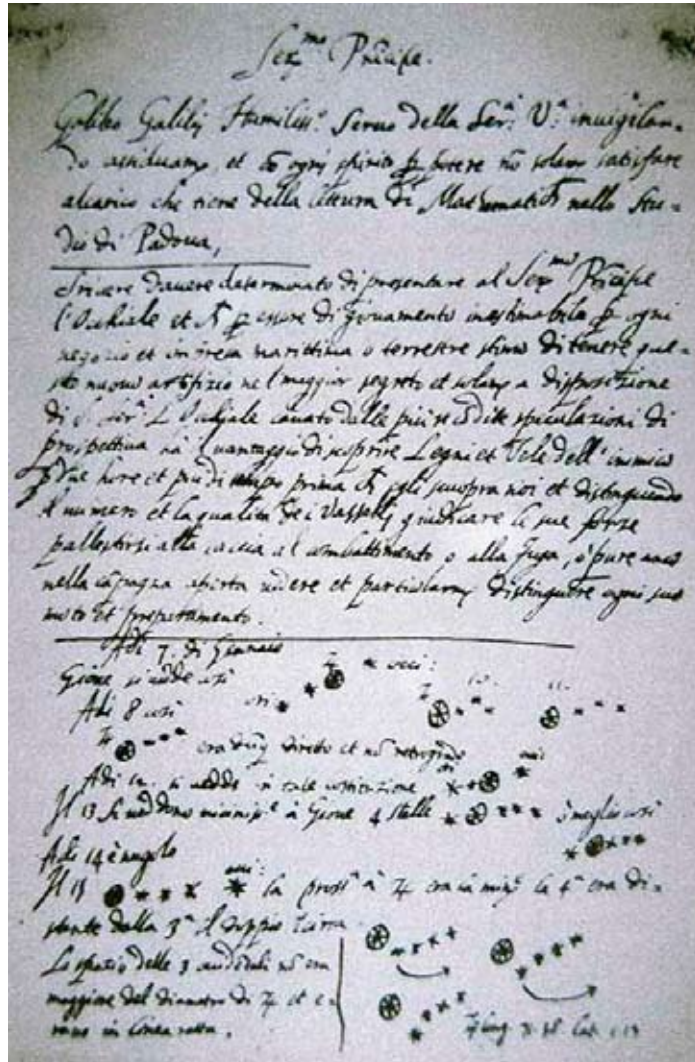 Ser.mo Principe.
Galileo Galilei Humiliss.o Servo della Ser.a V.a invigilan-
do assiduam.te et cō ogni spirito p potere nō solam.te satisfare
alcarico che tiene della lettura di Mathematich nello Stu-
dio di Padova,
Scrivere davere determinato di presentare al Ser.mo Principe
l'Ochiale et p essere di giovamento inestimabile p ogni
negozio et impresa marittima o terrestre stimo di tenere que-
sto nuovo artifizio nel maggior segreto et solam.te a disposizione
di S. Ser.a L'Ochiale cavato dalle più recōdite speculazioni di
prospettiva ha il vantaggio di scoprire Legni et Vele dell'inimico
p due hore et più di tempo prima ch egli scuopra noi et distinguendo
il numero et la qualità de i Vasselli giudicare le sue forze
pallestirsi alla caccia al combattimento o alla fuga, o pure anco
nella cāpagna aperta vedere et particolarm.te distinguere ogni suo
moto et preparamento.
Adi 7. di Gennaio
Gione si vede così
Adi 8 così
era dūq diretto et nō retrogrado
Adi 12. si vedde in tale costituzione
Il 13 si veddono vicinis.e à Giove 4 stelle è meglio così
Adi 14 è nugolo
Il 15 la pross.a à ♃ era la min.e la 4.a era di-
stante dalla 3.a il doppio
Lo spatio delle 3 occidentali nō era
maggiore del diametro di ♃ et e-
rano in linea retta.
♃ long.